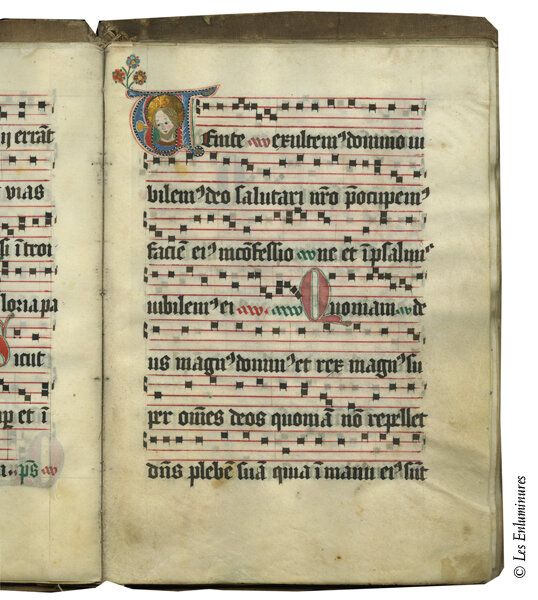 ij errāt
vias
si ītroi
loria pa
icut
ꝑ et ī
p̄s
Uenite exultemꝰ domino iu
bilemꝰ deo salutari nr̄o p̄ocupemꝰ
faciē eiꝰ in cōfessio ne et ī psalmi
iubilemꝰ ei Quoniam de
us magnꝰ dominꝰ et rex magnꝰ su
per om̄es deos quoniā nō repellet
dn̄s plebē suā quia ī manu eiꝰ sūt
© Les Enluminures